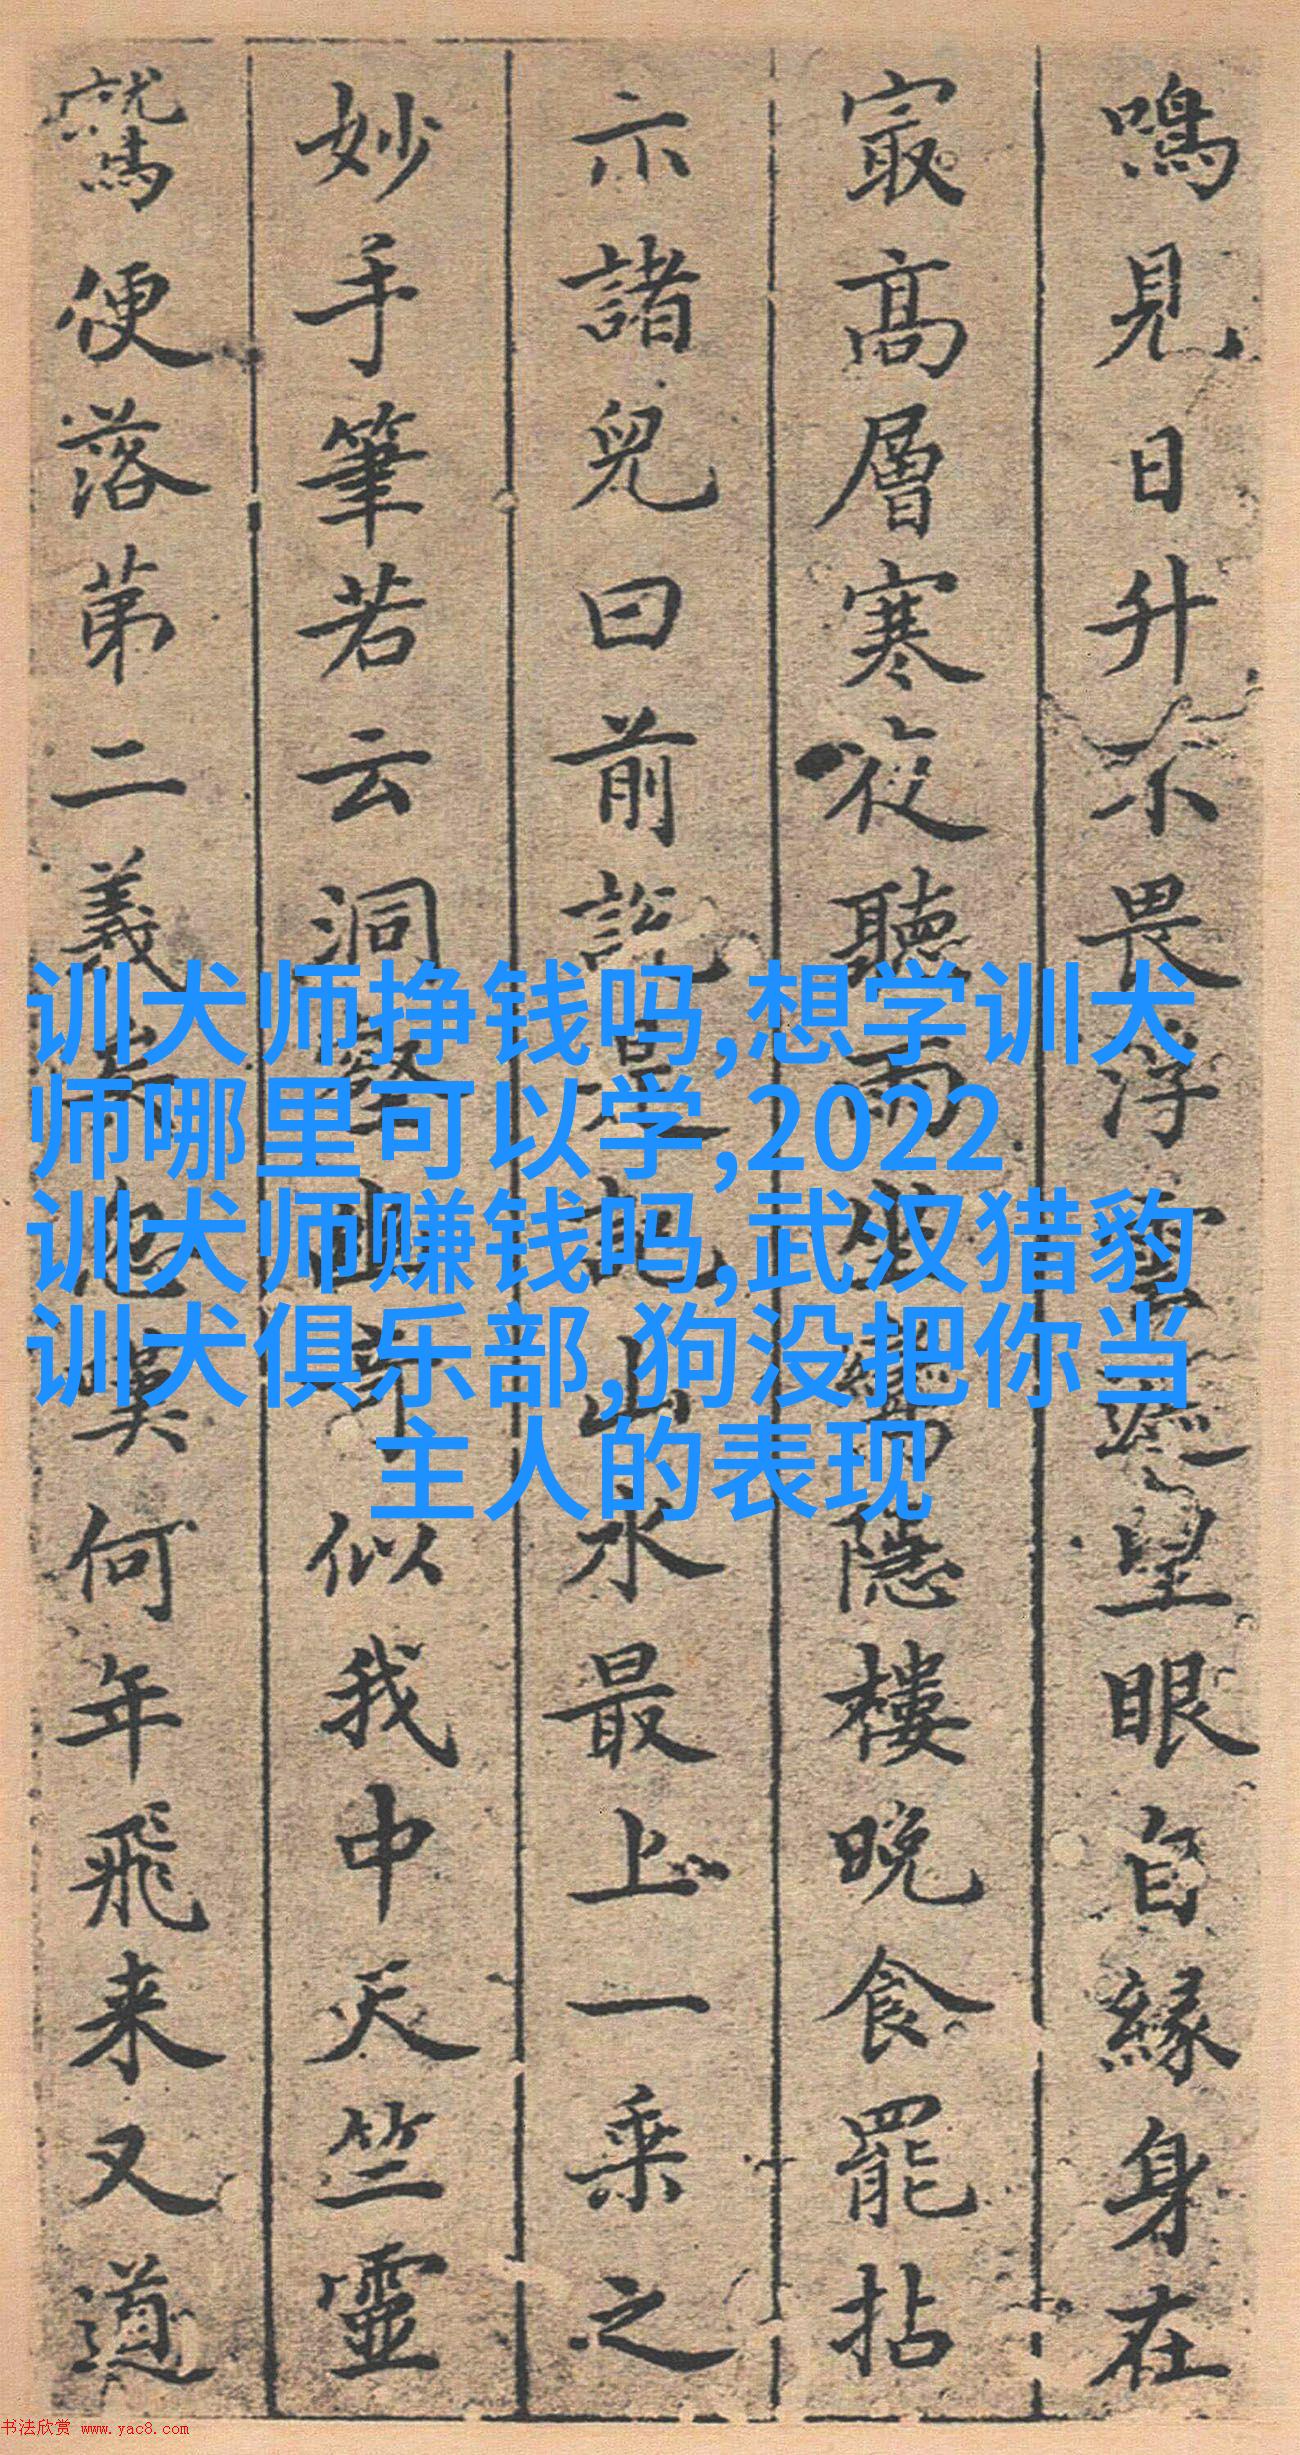 鳴見日升不畏浮雲遮望眼自緣身在
最高層寒夜聽雨坐隱樓晚食罷拈
示諸兒曰前説是山水最上一乘之
妙手筆若云洞壑幽奇似我中天竺靈
鷲便落第二義矣何年飛来又道
训犬师挣钱吗,想学训犬
师哪里可以学,2022
训犬师赚钱吗,武汉猎豹
训犬俱乐部,狗没把你当
主人的表现
书法欣赏 www.yac8.com